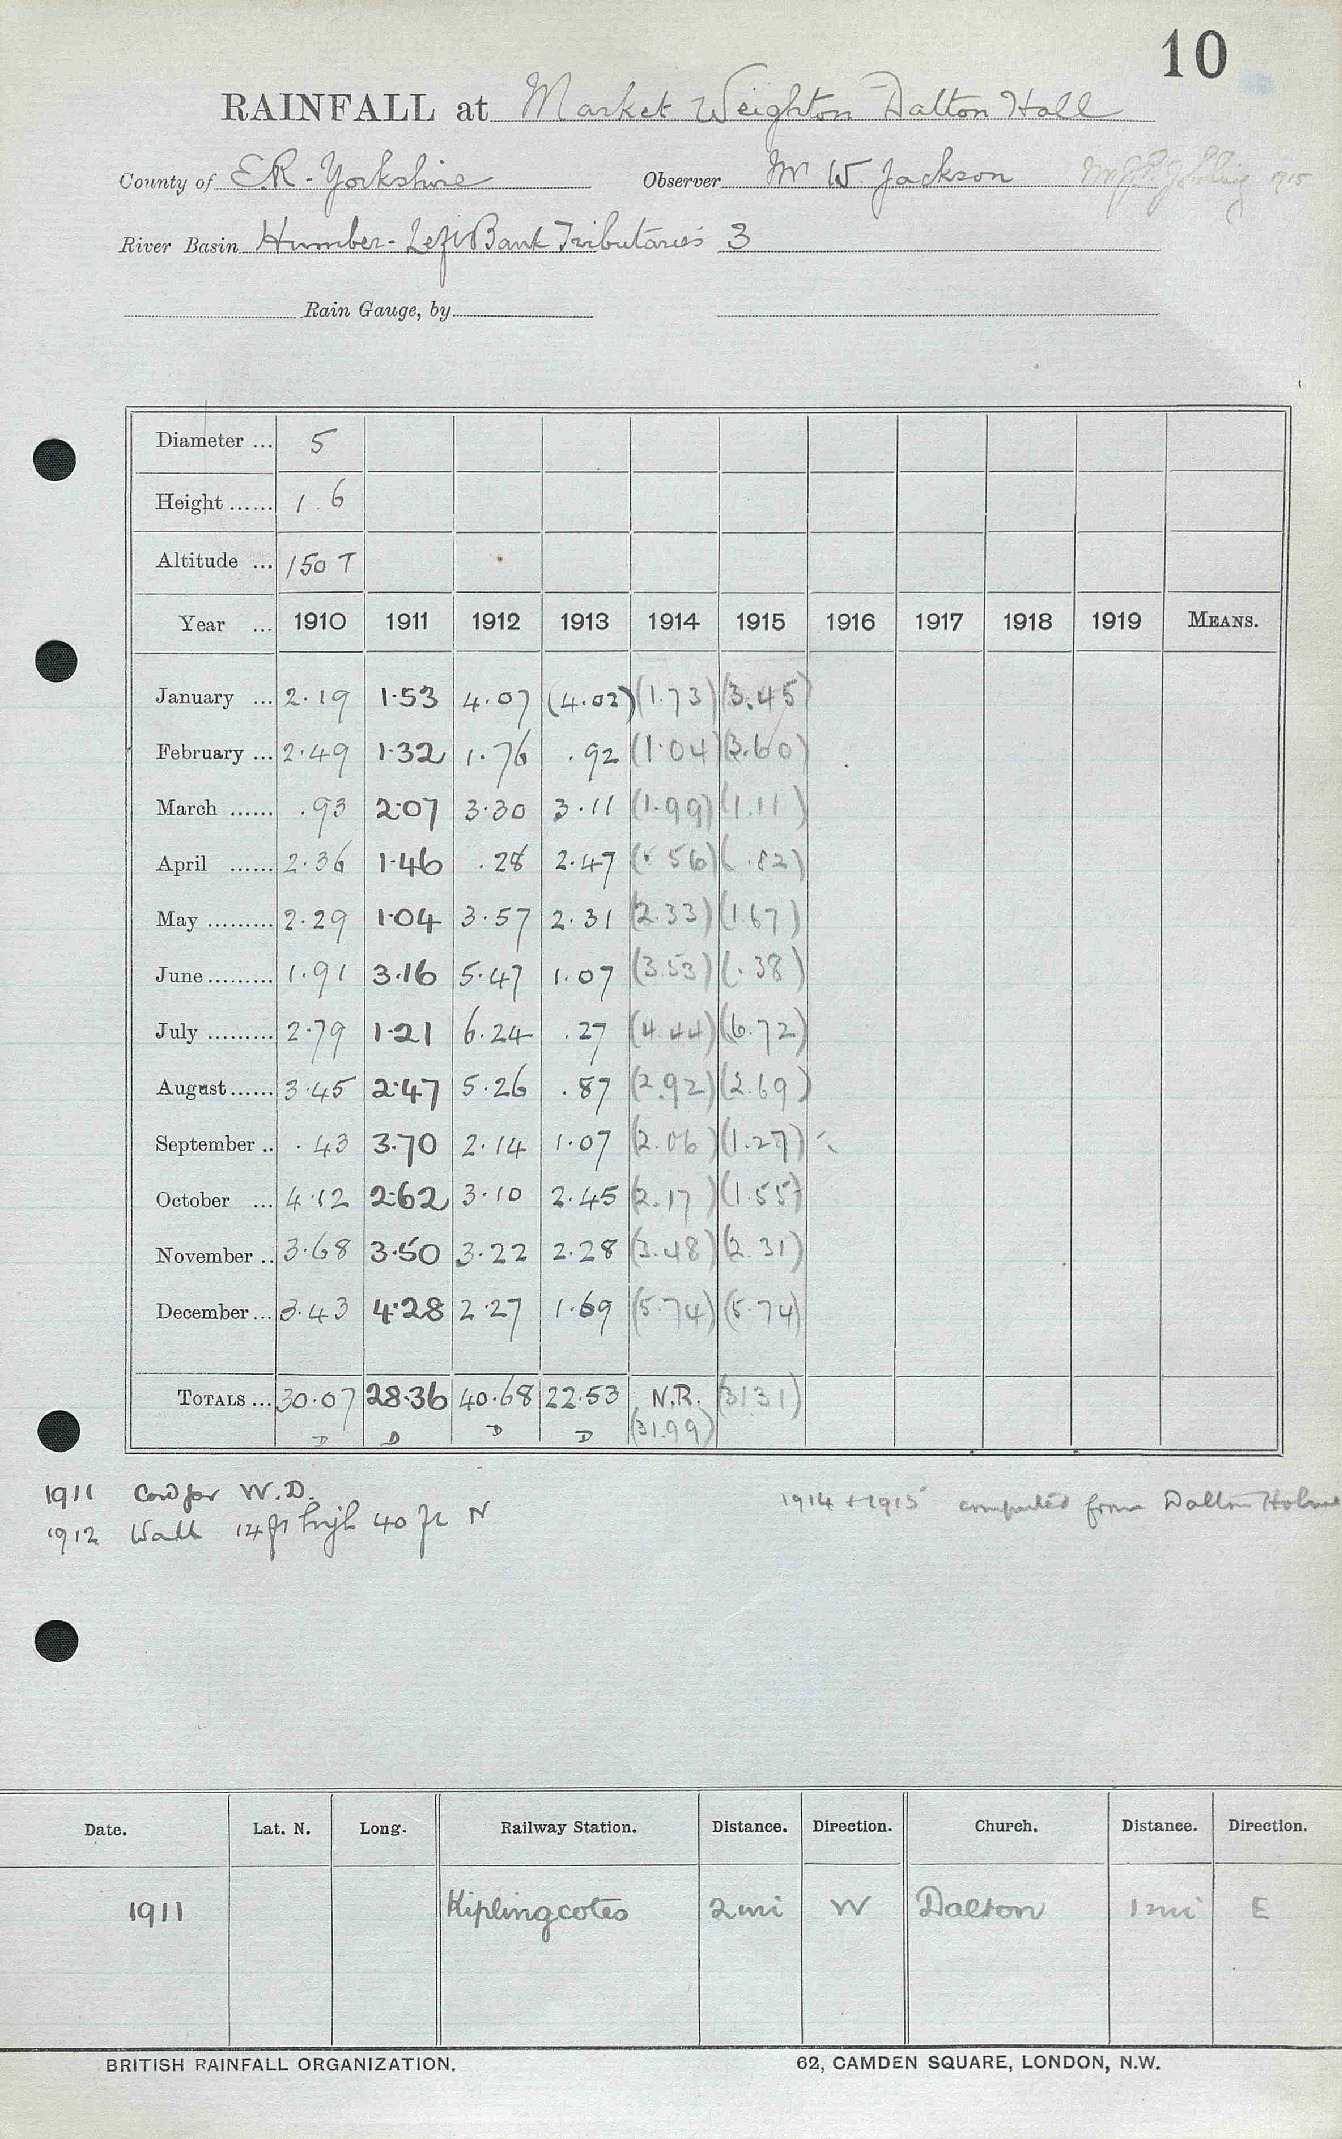 10
RAINFALL at Market Weighton Dalton Hall
County of E.R. Yorkshire Observer Mr W. Jackson 1915
River Basin Humber - Left Bank Tributaries 3
Rain Gauge, by
Diameter ... 5
Height ...... 1 . 6
Altitude ... 150 T
Year ... 1910 1911 1912 1913 1914 1915 1916 1917 1918 1919 MEANS.
January ... 2.19 1.53 4.07 (4.02) (1.73) (3.45)
February ... 2.49 1.32 1.76 .92 (1.04) (3.60)
March ...... .93 2.07 3.30 3.11 (1.99) (1.11)
April ...... 2.36 1.46 .28 2.47 (.56) (.82)
May ......... 2.29 1.04 3.57 2.31 (2.33) (1.67)
June ......... 1.91 3.16 5.47 1.07 (3.53) (.38)
July ......... 2.79 1.21 6.24 .27 (4.44) (6.72)
August ...... 3.45 2.47 5.26 .87 (2.92) (2.69)
September .. .43 3.70 2.14 1.07 (2.06) (1.27)
October ... 4.12 2.62 3.10 2.45 (2.17) (1.55)
November .. 3.68 3.50 3.22 2.28 (3.48) (2.31)
December ... 3.43 4.28 2.27 1.69 (5.74) (5.74)
TOTALS ... 30.07 28.36 40.68 22.53 N.R. (31.31)
D D D D (31.99)
1911 W.D.
1912 Wall 14 ft high 40 ft N
1914 + 1915 computed from Dalton Holme
Date. Lat. N. Long. Railway Station. Distance. Direction. Church. Distance. Direction.
1911 Kiplingcotes 2 mi W Dalton 1 mi E
BRITISH RAINFALL ORGANIZATION. 62, CAMDEN SQUARE, LONDON, N.W.